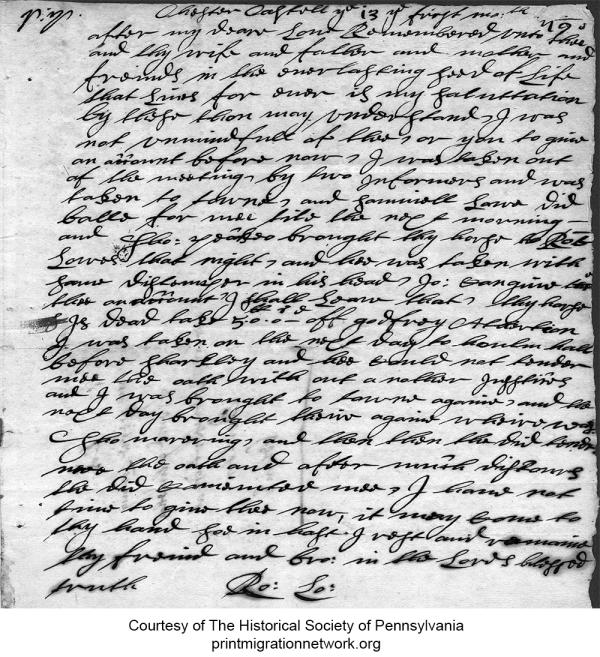 Chester Castell ye 13 ye first mo:th
after my deare Love Remembered unto thee
and thy wife and father and mother and
freinds in the everlasting seed of Life
that Lives for ever is my saluttation
by these thou may understand, I was
not unmindfull of thee, or you to give
an account before now, I was taken out
of the meeting, by two Informers and was
taken to towne, and Sammuell Lowe did
balle for mee till the next morning
and Tho: brought thy horse to Robt
Lowes that night, and hee was taken with
some distemper in his head, Jo: can give
thee an account, I shall Leave that, thy horse
Is dead take off godfrey Atherton
I was taken on the next day to houlm hall
before sharkley and hee could not tender
mee the oath with out another Justises
and I was brought to towne againe, and the
next day brought theire againe wheire was
and then then the did tender
mee the oath and after much discours
the did committee mee, I have not
time to give thee now, it may come to
thy hand soe in hast I rest and remaine
thy freind and bro: in the Lords blessed
truth Ro: Lo:
Courtesy of The Historical Society of Pennsylvania
printmigrationnetwork.org